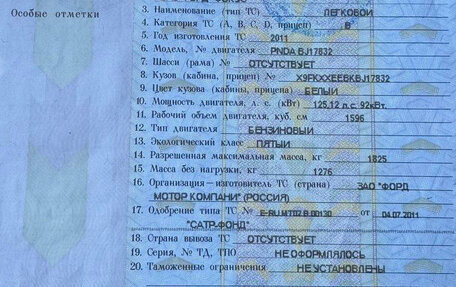 Особые отметки
3. Наименование (тип ТС) ЛЕГКОВОЙ
4. Категория ТС (А, В, С, D, прицеп) B
5. Год изготовления ТС 2011
6. Модель, № двигателя PNDA BJ17832
7. Шасси (рама) № ОТСУТСТВУЕТ
8. Кузов (кабина, прицеп) № X9FKXXEEBKBJ17832
9. Цвет кузова (кабины, прицепа) БЕЛЫЙ
10. Мощность двигателя, л. с. (кВт) 125,12 л.с. 92кВт.
11. Рабочий объем двигателя, куб. см 1596
12. Тип двигателя БЕНЗИНОВЫЙ
13. Экологический класс ПЯТЫЙ
14. Разрешенная максимальная масса, кг 1825
15. Масса без нагрузки, кг 1276
16. Организация—изготовитель ТС (страна) ЗАО "ФОРД
МОТОР КОМПАНИ" (РОССИЯ)
17. Одобрение типа ТС № E-RU.MT02.B.00130 от 04.07.2011
"САТР-ФОНД"
18. Страна вывоза ТС ОТСУТСТВУЕТ
19. Серия, № ТД, ТПО НЕ ОФОРМЛЯЛОСЬ
20. Таможенные ограничения НЕ УСТАНОВЛЕНЫ